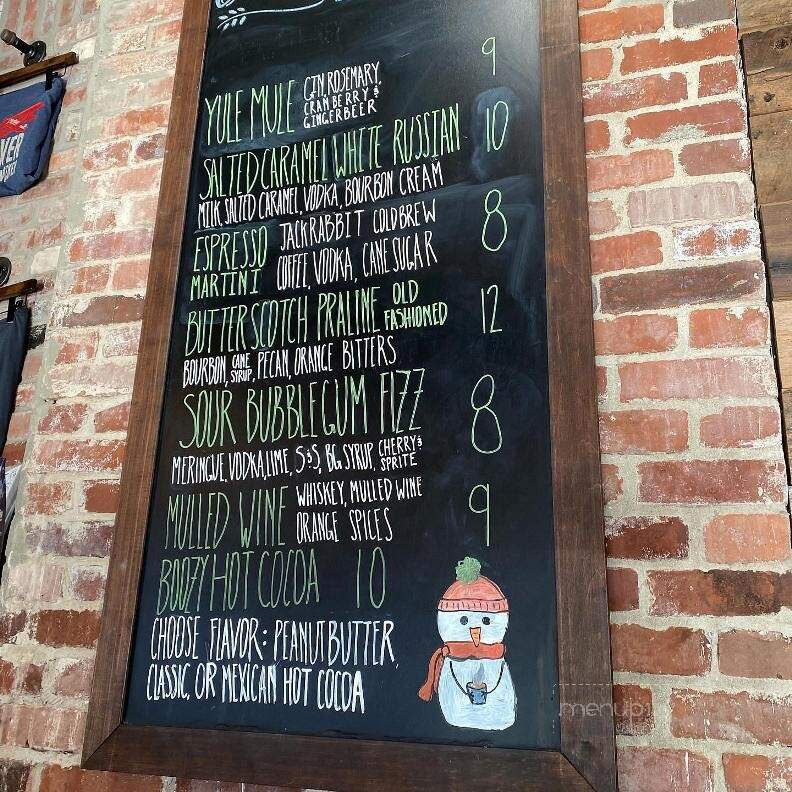 YULE MULE GIN, ROSEMARY, 9
CRANBERRY &
GINGERBEER
SALTED CARAMEL WHITE RUSSIAN 10
MILK, SALTED CARAMEL, VODKA, BOURBON CREAM
ESPRESSO JACKRABBIT COLDBREW 8
MARTINI COFFEE, VODKA, CANE SUGAR
BUTTERSCOTCH PRALINE OLD FASHIONED 12
BOURBON, CANE SYRUP, PECAN, ORANGE BITTERS
SOUR BUBBLEGUM FIZZ 8
MERINGUE, VODKA, LIME, S&S, BG SYRUP, CHERRY & SPRITE
MULLED WINE WHISKEY, MULLED WINE 9
ORANGE SPICES
BOOZY HOT COCOA 10
CHOOSE FLAVOR: PEANUT BUTTER,
CLASSIC, OR MEXICAN HOT COCOA